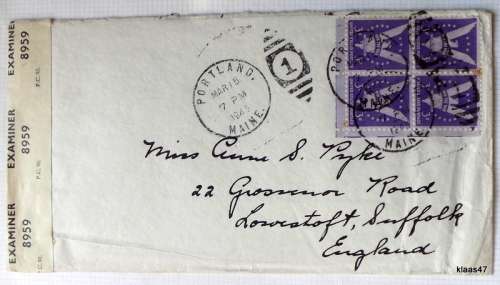 EXAMINER 8959
P.C. 90.
EXAMINER 8959
P.C. 90.
EXAMINER 8959
PORTLAND,
MAR 15
7 PM
1945
MAINE.
1
PORTLAND
MAINE
Miss Anne S. Pyke
22 Grosvenor Road
Lowestoft, Suffolk
England
klaas47